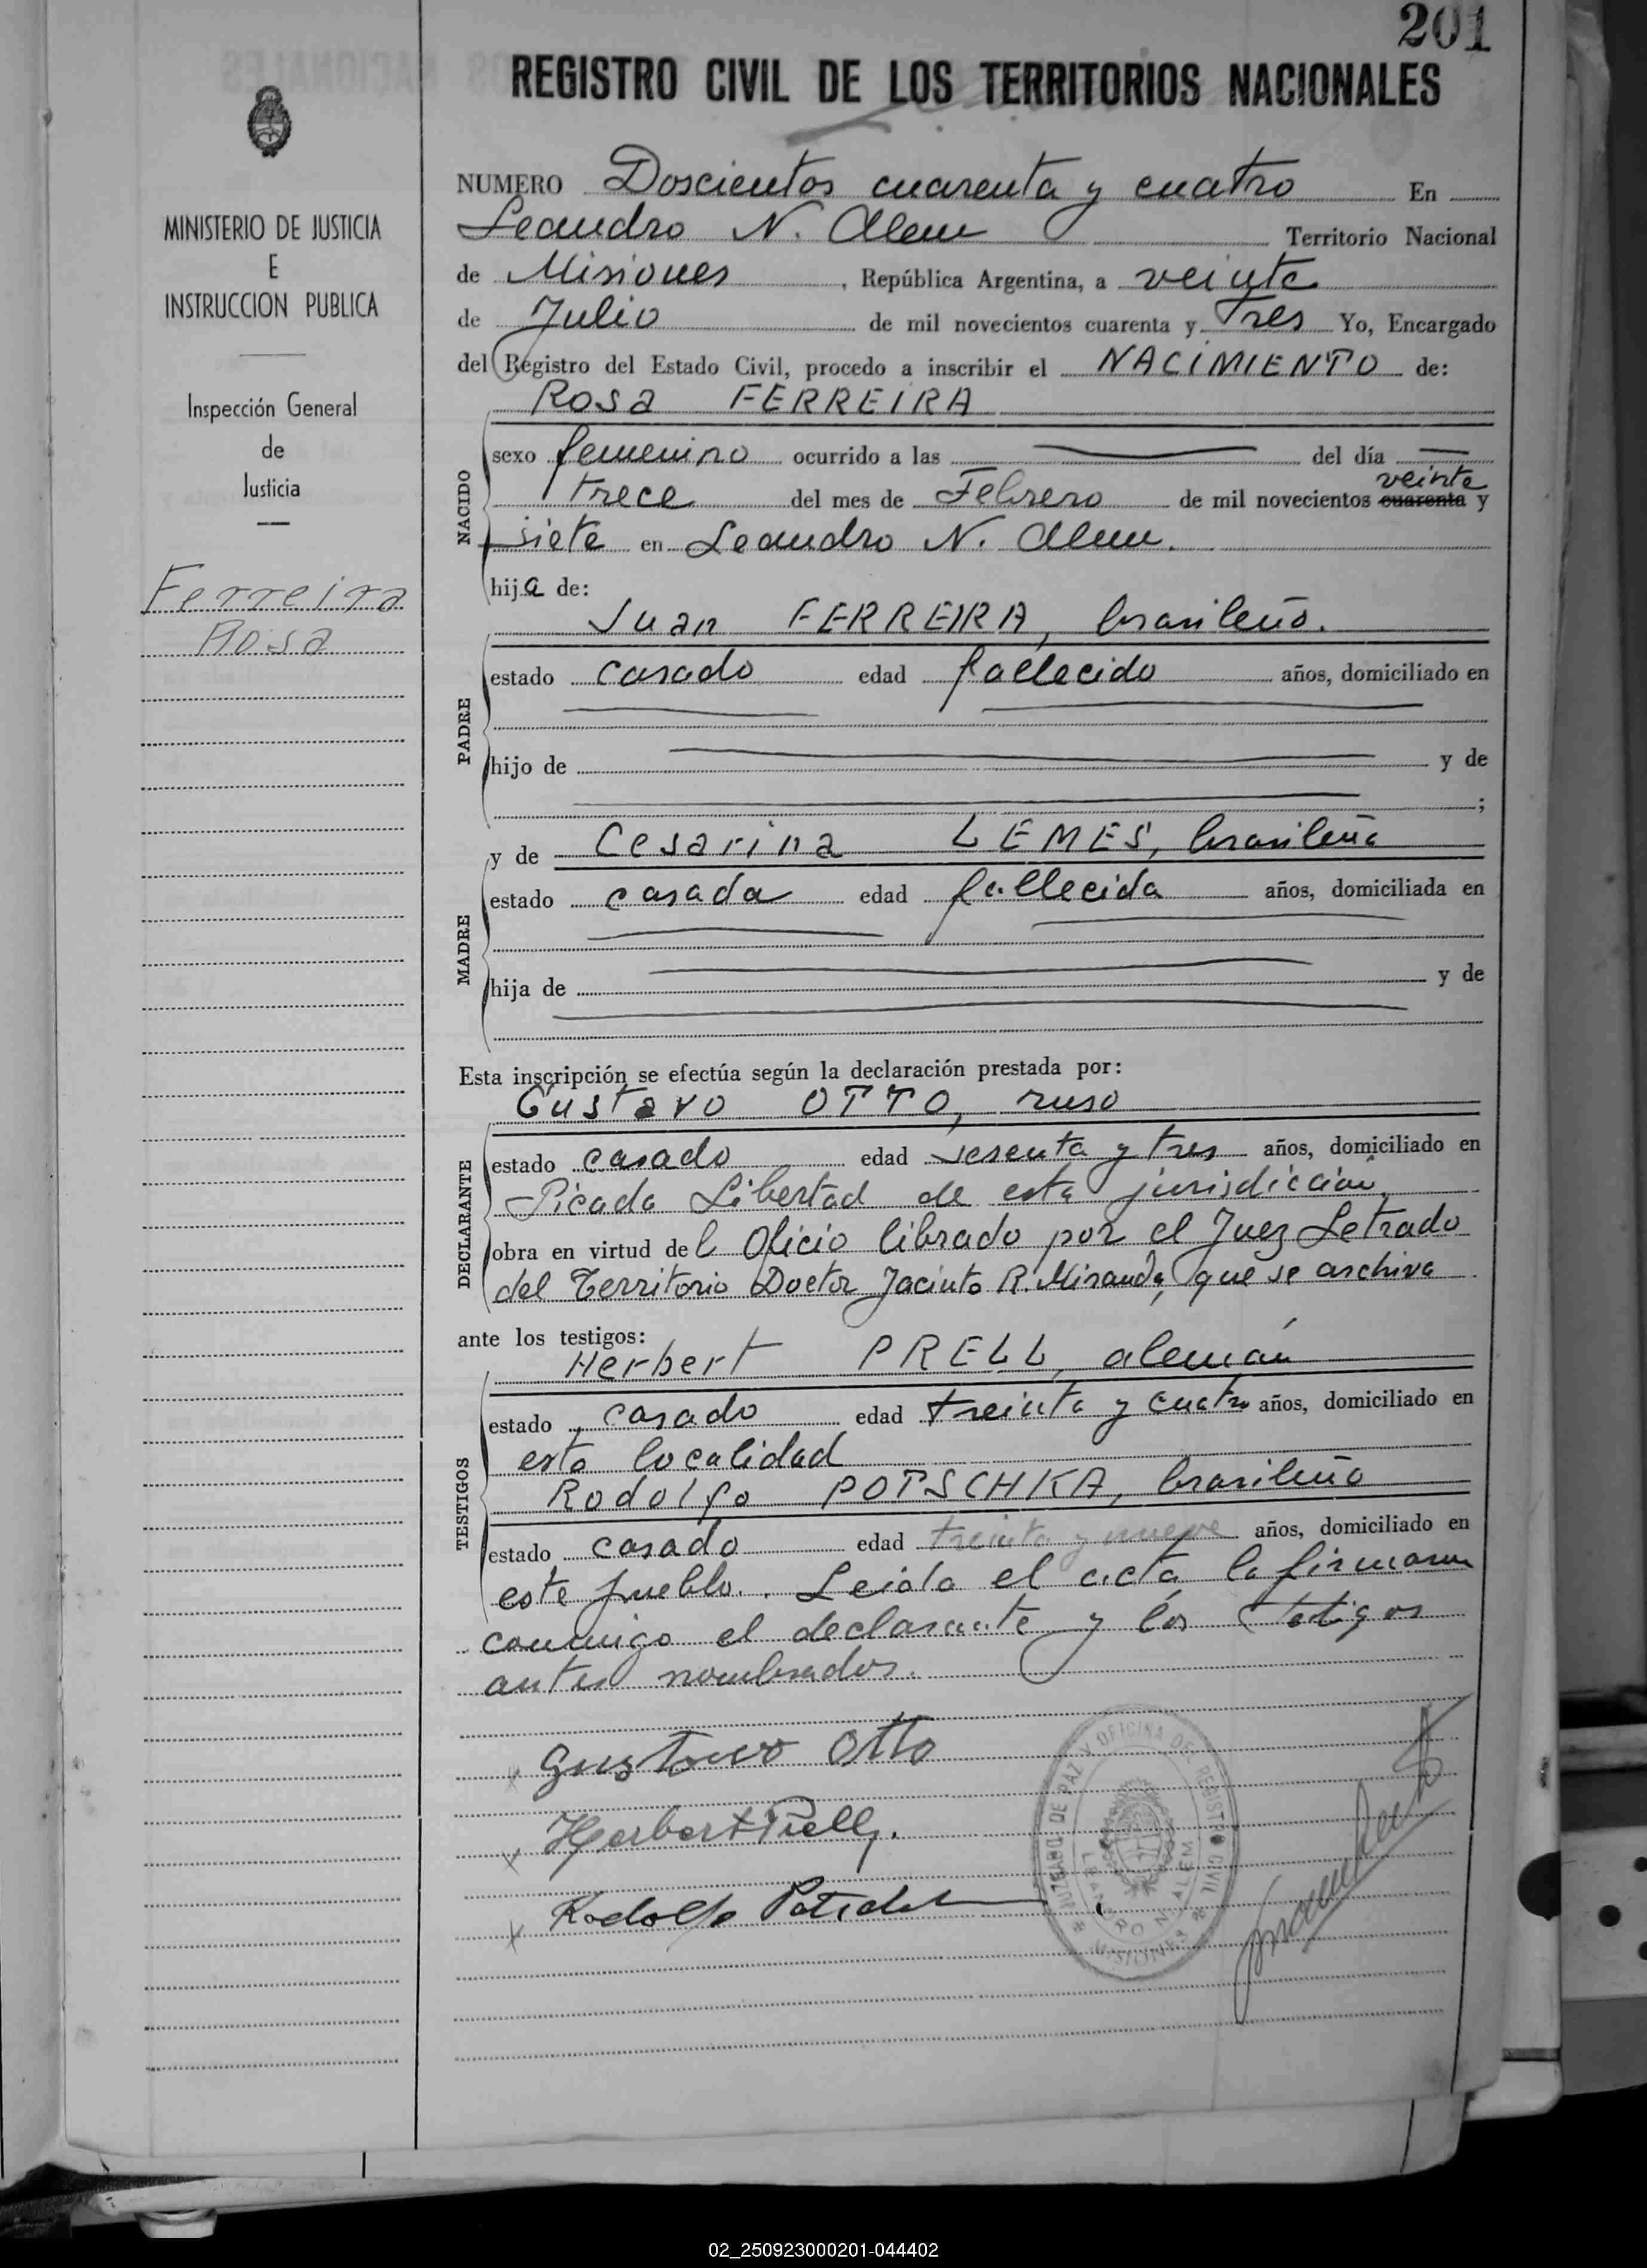 201
REGISTRO CIVIL DE LOS TERRITORIOS NACIONALES
MINISTERIO DE JUSTICIA
E
INSTRUCCION PUBLICA
Inspección General
de
Justicia
Ferreira
Rosa
NUMERO Doscientos cuarenta y cuatro En
Leandro N. Alem Territorio Nacional
de Misiones, República Argentina, a veinte
de Julio de mil novecientos cuarenta y Tres Yo, Encargado
del Registro del Estado Civil, procedo a inscribir el NACIMIENTO de:
Rosa FERREIRA
NACIDO
sexo femenino ocurrido a las del día
veinte
trece del mes de Febrero de mil novecientos cuarenta y
siete en Leandro N. Alem.
hija de:
Juan FERREIRA, brasileño.
PADRE
estado casado edad fallecido años, domiciliado en
hijo de y de
;
y de Cesarina LEMES, brasileña
MADRE
estado casada edad fallecida años, domiciliada en
hija de y de
Esta inscripción se efectúa según la declaración prestada por:
Gustavo OTTO, ruso
DECLARANTE
estado casado edad sesenta y tres años, domiciliado en
Picada Libertad de esta jurisdicción,
obra en virtud del Oficio librado por el Juez Letrado
del Territorio Doctor Jacinto R. Miranda, que se archiva
ante los testigos:
Herbert PRELL, alemán
TESTIGOS
estado casado edad treinta y cuatro años, domiciliado en
esta localidad
Rodolfo POTSCHKA, brasileño
estado casado edad treinta y nueve años, domiciliado en
este pueblo. Leida el acta la firmaron
conmigo el declarante y los testigos
antes nombrados.
Gustavo Otto
Herbert Prell.
Rodolfo
JUZGADO DE PAZ Y OFICINA DE REGISTRO CIVIL
LEANDRO N. ALEM
MISIONES
02_250923000201-044402